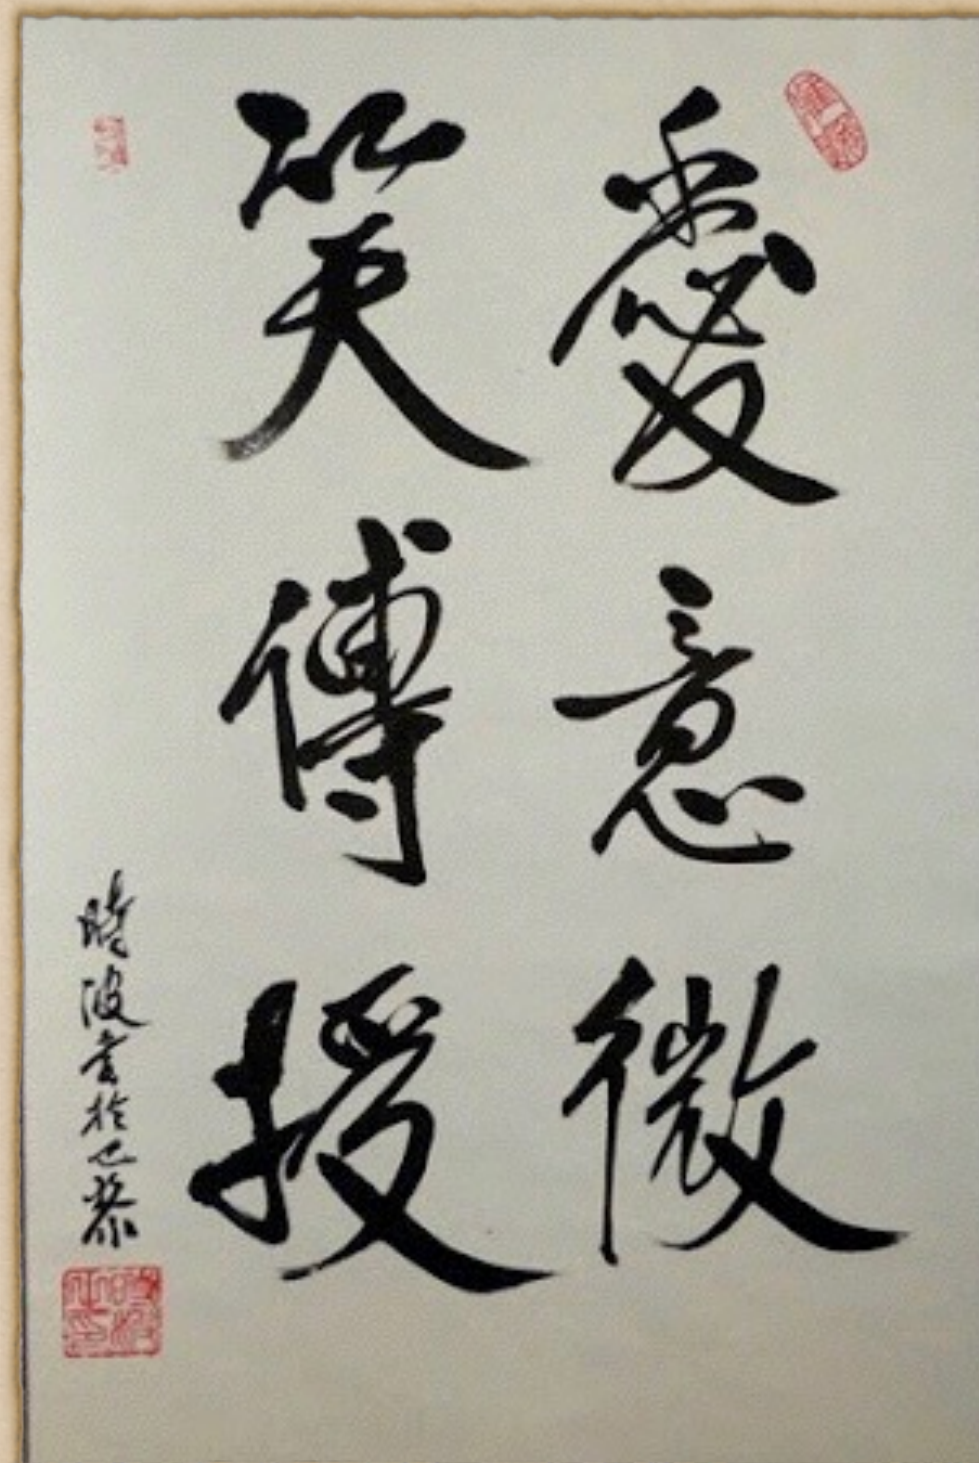 愛意微
笑傳授
曉波書於巴黎